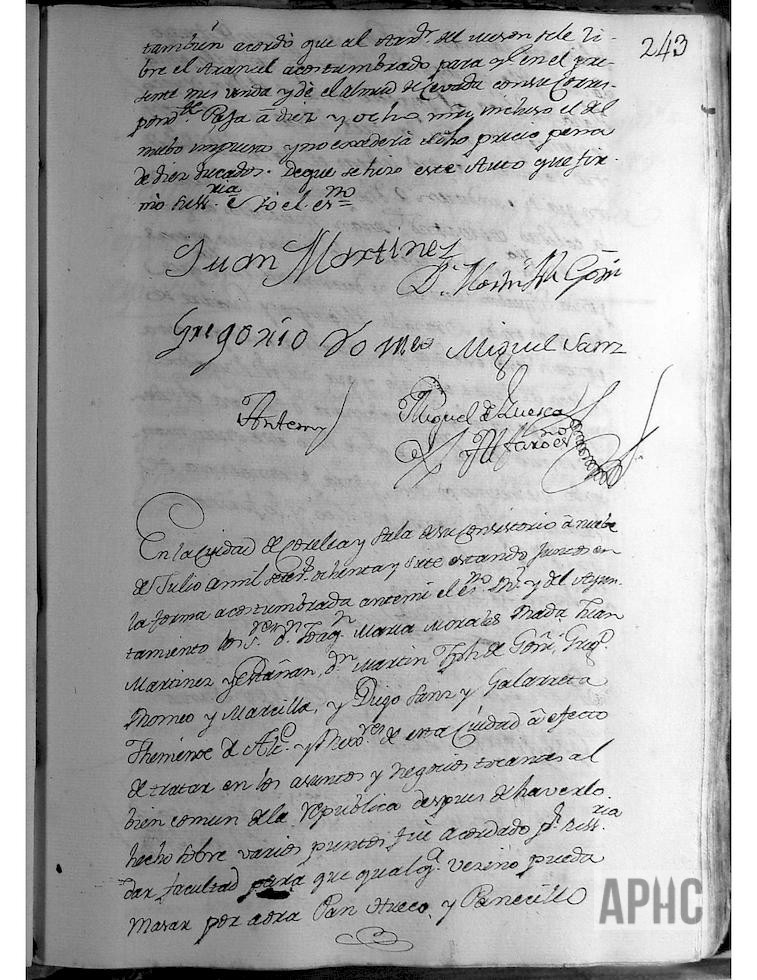 243
tambien acordó que al Arrdr. del meson se le li-
bre el Arancel acostumbrado para qe. en el pre-
sente mes venda y dé el almud de Cevada con su Corres-
pondte. Paja a diez y ocho mrs. incluso el del
nuebo impuesto y no excederá dicho precio pena
de diez ducados. De que se hizo este Auto que fir-
mó su Ssria. e Yo el esno.
Juan Martinez
Dn. Martin Jph Goñi
Gregorio Romeo Miguel Sanz
Antemi Miguel de Luesca
y Alfaro esno
En la Ciudad de Corella y Sala de su Consistorio á nuebe
de Julio de mil setecs. ochenta y siete estando juntos en
la forma acostumbrada antemi el esno. Rl. y del Ayun-
tamiento los Sres. Dn. Joaqn. Maria Morales Rada Juan
Martinez y Estañan, Dn. Martin Jph de Goñi, Gregº.
Rhomeo y Marcilla, y Diego Sanz y Galarreta
Theniente de Alce. y Rexres. de esta Ciudad á efecto
de tratar en los asuntos y negocios tocantes al
bien comun de la Republica despues de haverlo
hecho sobre varios puntos fué acordado pr. su Ssria
dar facultad para que qualqa. vezino pueda
Masar por aora Pan Hueco, y Panecillo
APHC